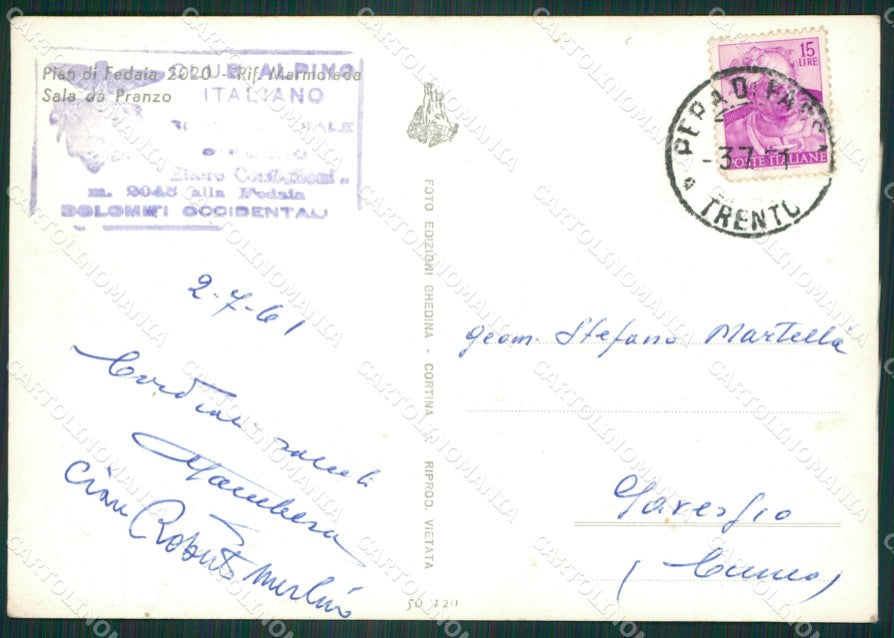 Pian di Fedaia 2020 - Rif. Marmolada
Sala da Pranzo
CLUB ALPINO
ITALIANO
m. 2045 alla Fedaia
DOLOMITI OCCIDENTALI
15
LIRE
POSTE ITALIANE
PERA DI FASSA
-3.7.61
TRENTO
FOTO EDIZIONI GHEDINA - CORTINA RIPROD. VIETATA
2-7-61
Cordiali saluti
Gian Roberto Merlino
geom. Stefano Martella
Garessio
(Cuneo)
50 120
CARTOLINOMANIA